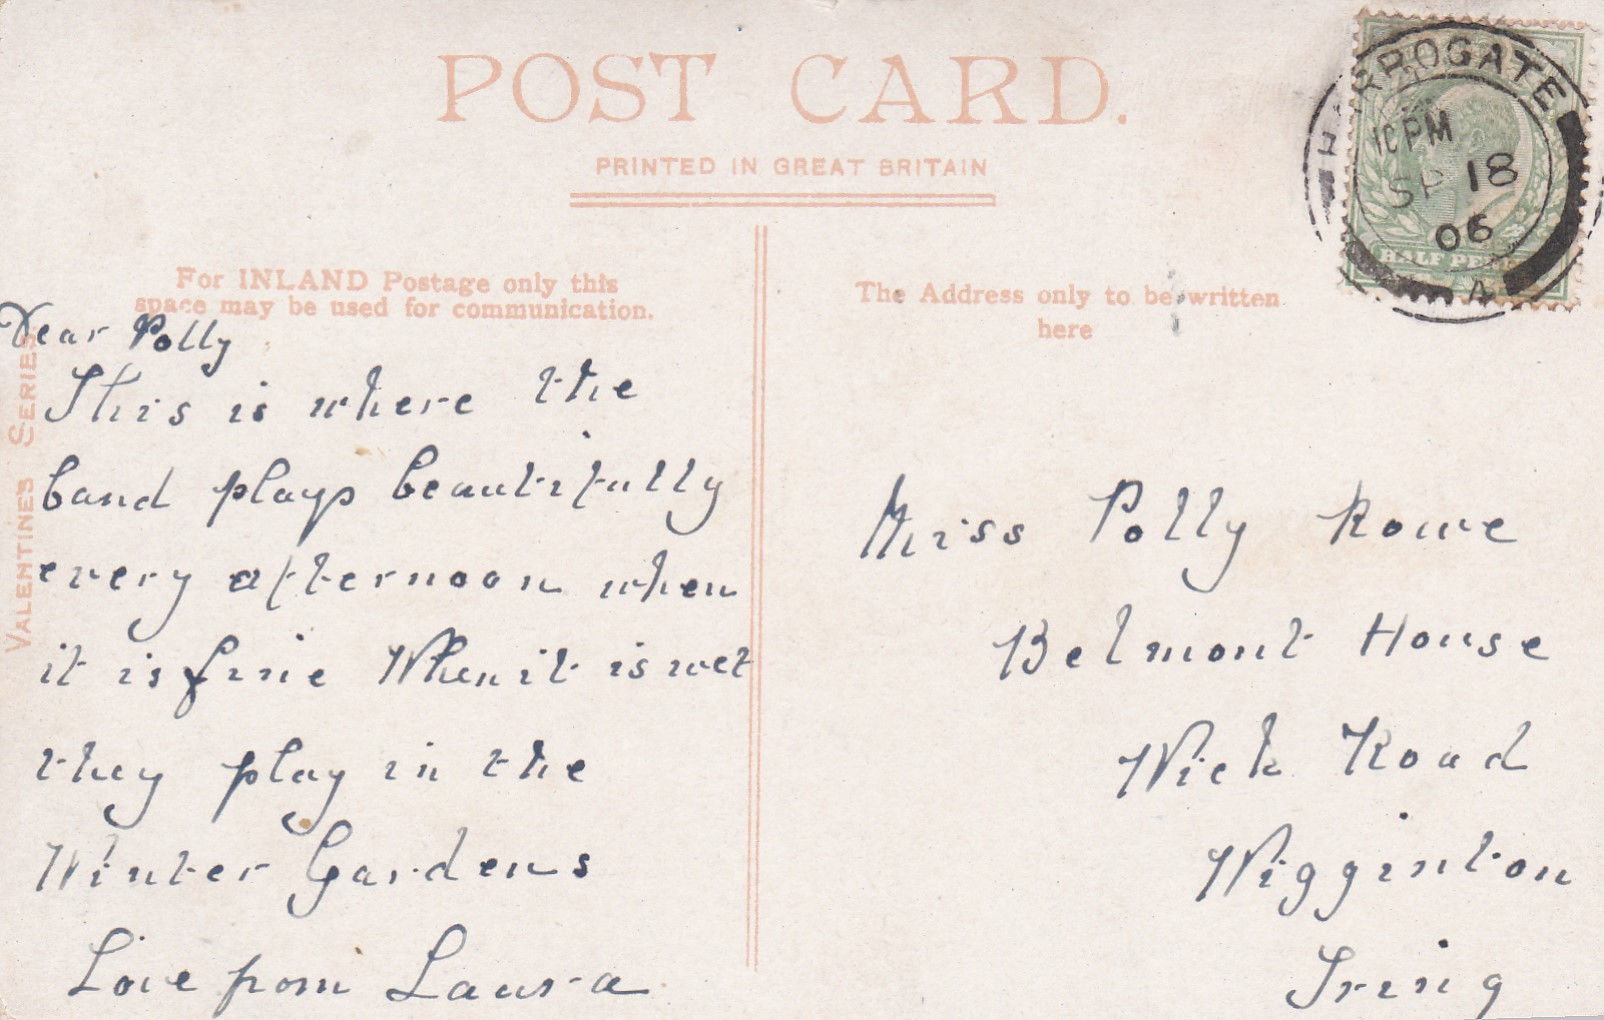 POST CARD.
PRINTED IN GREAT BRITAIN
For INLAND Postage only this
space may be used for communication.
The Address only to be written
here
HARROGATE
10 PM
SP 18
06
A
HALF PENNY
VALENTINE'S SERIES
Dear Polly
This is where the
band plays beautifully
every afternoon when
it is fine When it is wet
they play in the
Winter Gardens
Love from Laura
Miss Polly Rowe
Belmont House
Wick Road
Wigginton
Tring